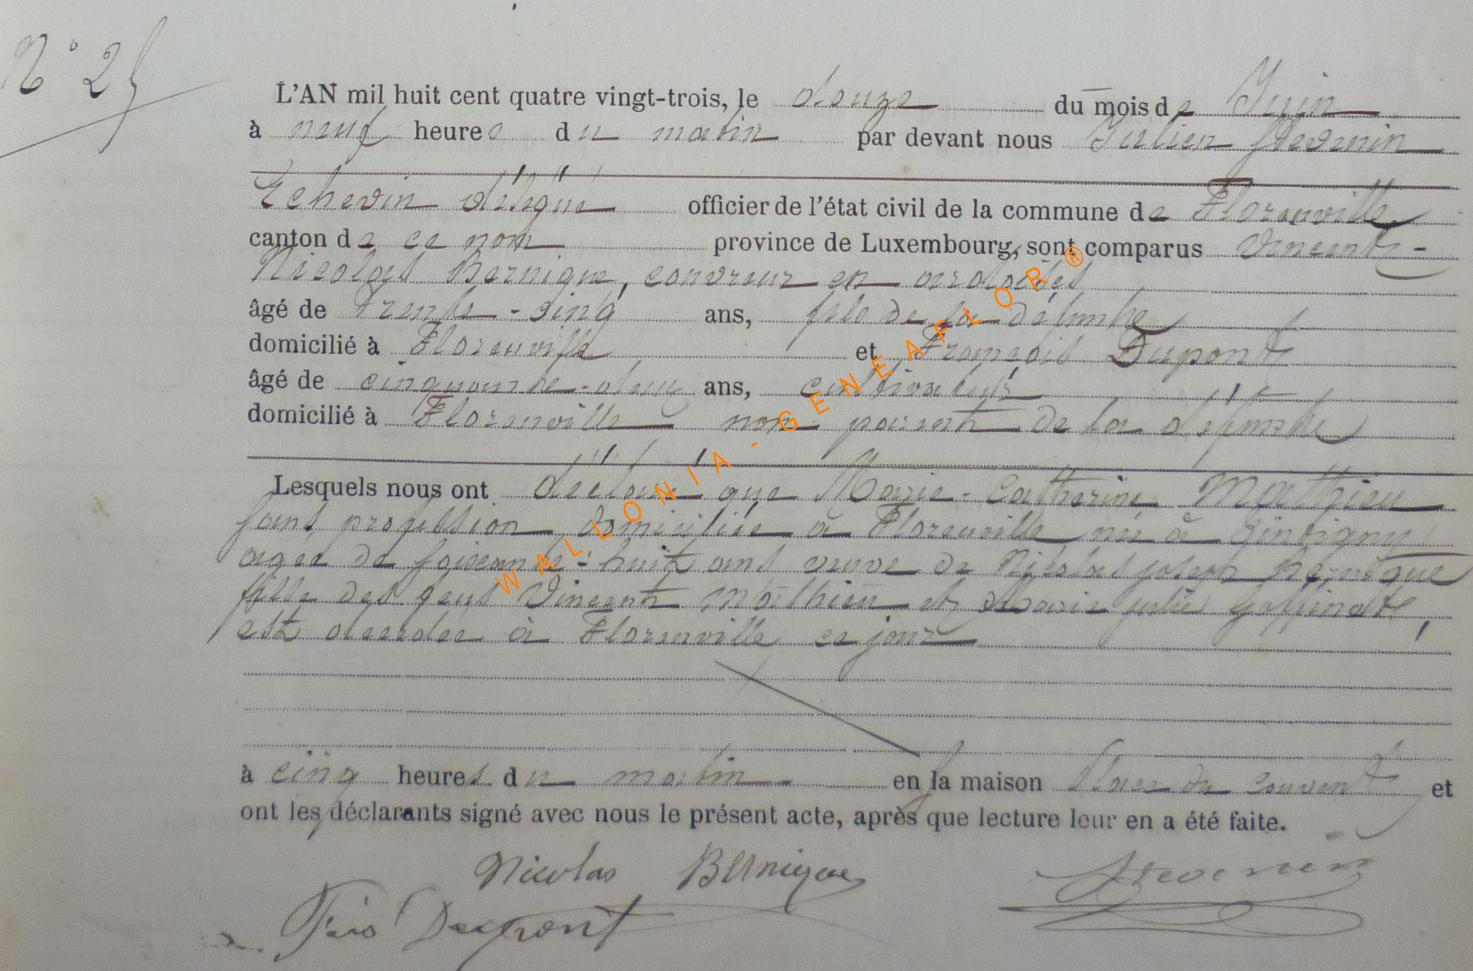 N° 25
L'AN mil huit cent quatre vingt-trois, le douze du mois de Juin
à neuf heures du matin par devant nous Julien
Echevin délégué officier de l'état civil de la commune de Florenville
canton de ce nom province de Luxembourg, sont comparus Vincent-
Nicolas Bernique, couvreur en ardoises
âgé de trente-cinq ans, fils de la défunte
domicilié à Florenville et François Dupont
âgé de cinquante-deux ans, cultivateur
domicilié à Florenville non parent de la défunte
Lesquels nous ont déclaré que Marie-Catherine Mathieu
sans profession domiciliée à Florenville née à Tintigny
agée de soixante-huit ans veuve de Nicolas Joseph Bernique
fille des feus Vincent Mathieu et Marie
est decedée à Florenville ce jour
à cinq heures du matin en la maison Place du Couvent et
ont les déclarants signé avec nous le présent acte, après que lecture leur en a été faite.
Nicolas Bernique
Dupont
WALLONIA - GENEAFLOR ®